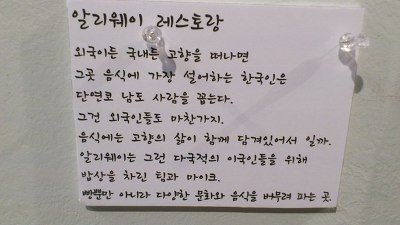 알리웨이 레스토랑
외국이든 국내든 고향을 떠나면
그곳 음식에 가장 설어하는 한국인은
단연코 남도 사람을 꼽는다.
그건 외국인들도 마찬가지.
음식에는 고향의 삶이 함께 담겨있어서 일까.
알리웨이는 그런 다국적의 이국인들을 위해
밥상을 차린 팀과 마이크.
빵뿐만 아니라 다양한 문화와 음식을 버무려 파는 곳.